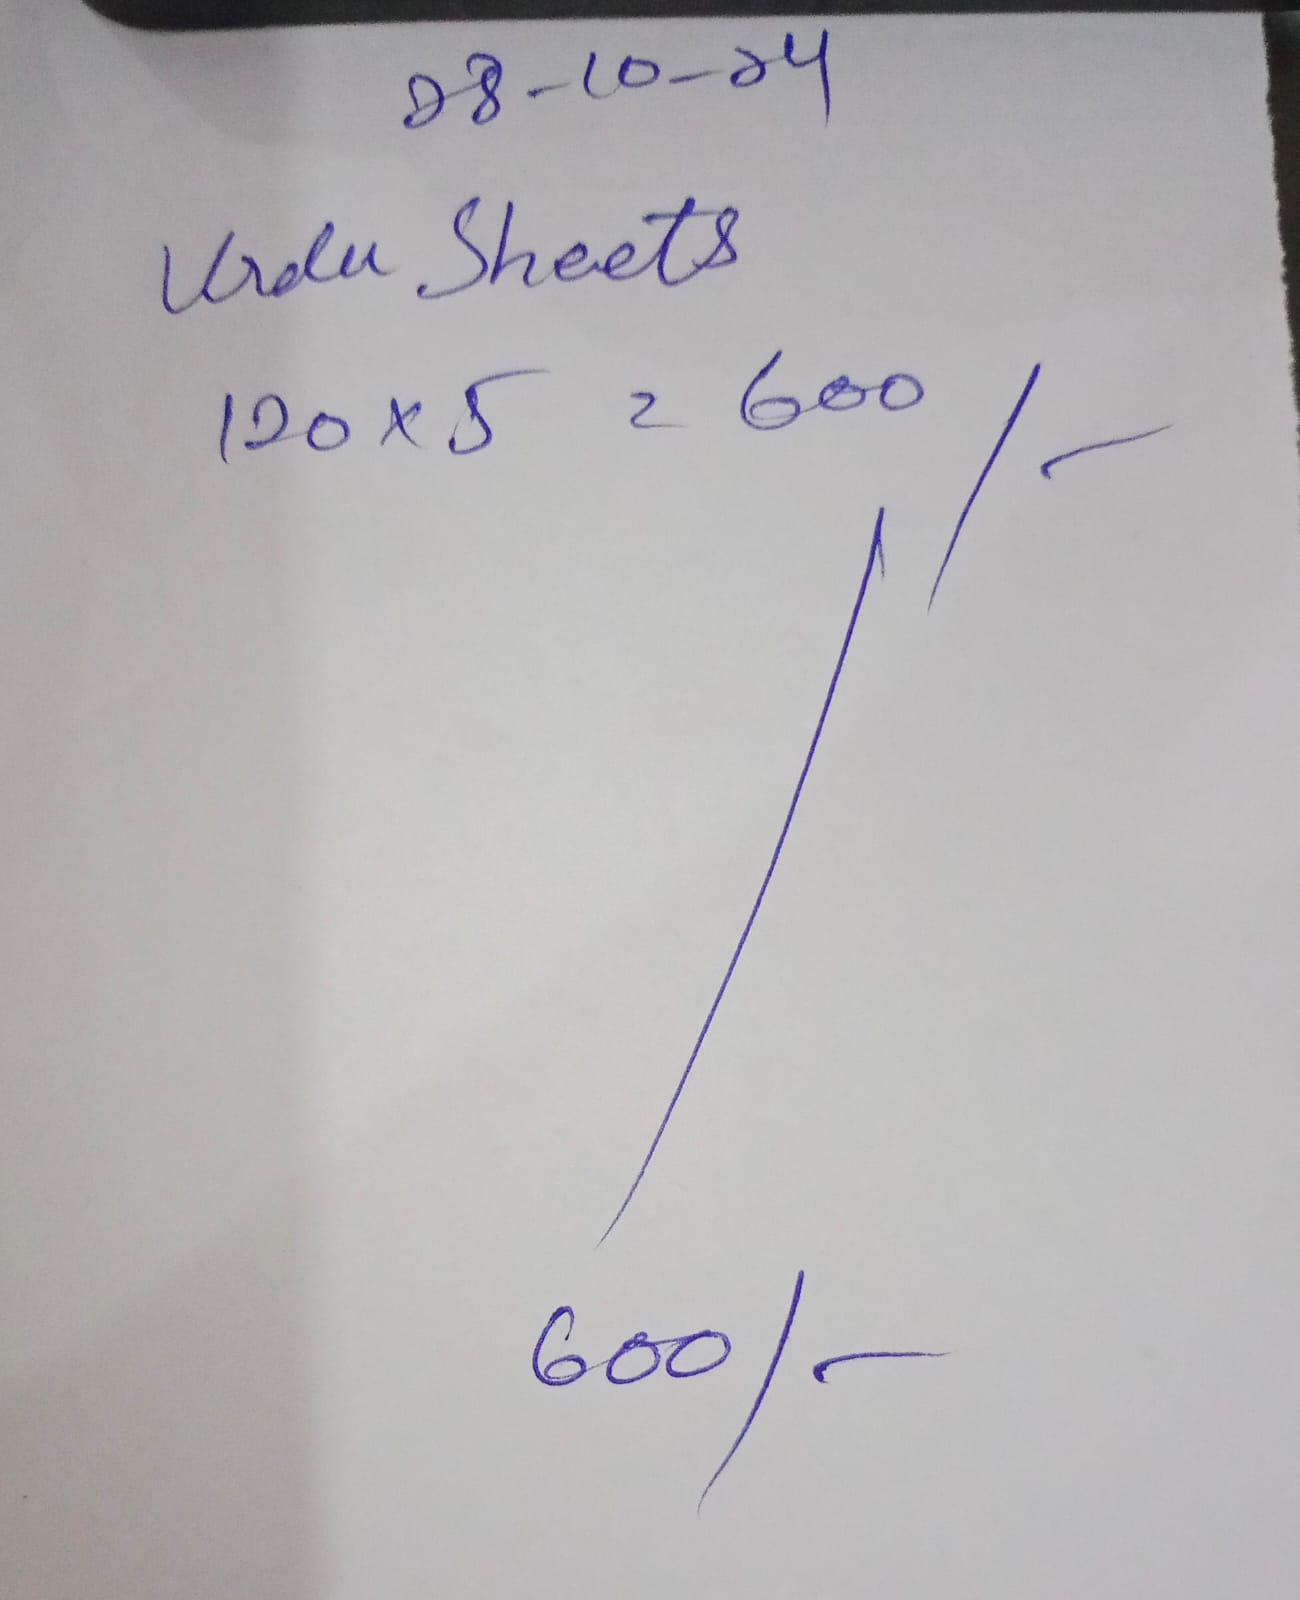 28-10-24
Urdu Sheets
120 x 5 = 600/-
600/-